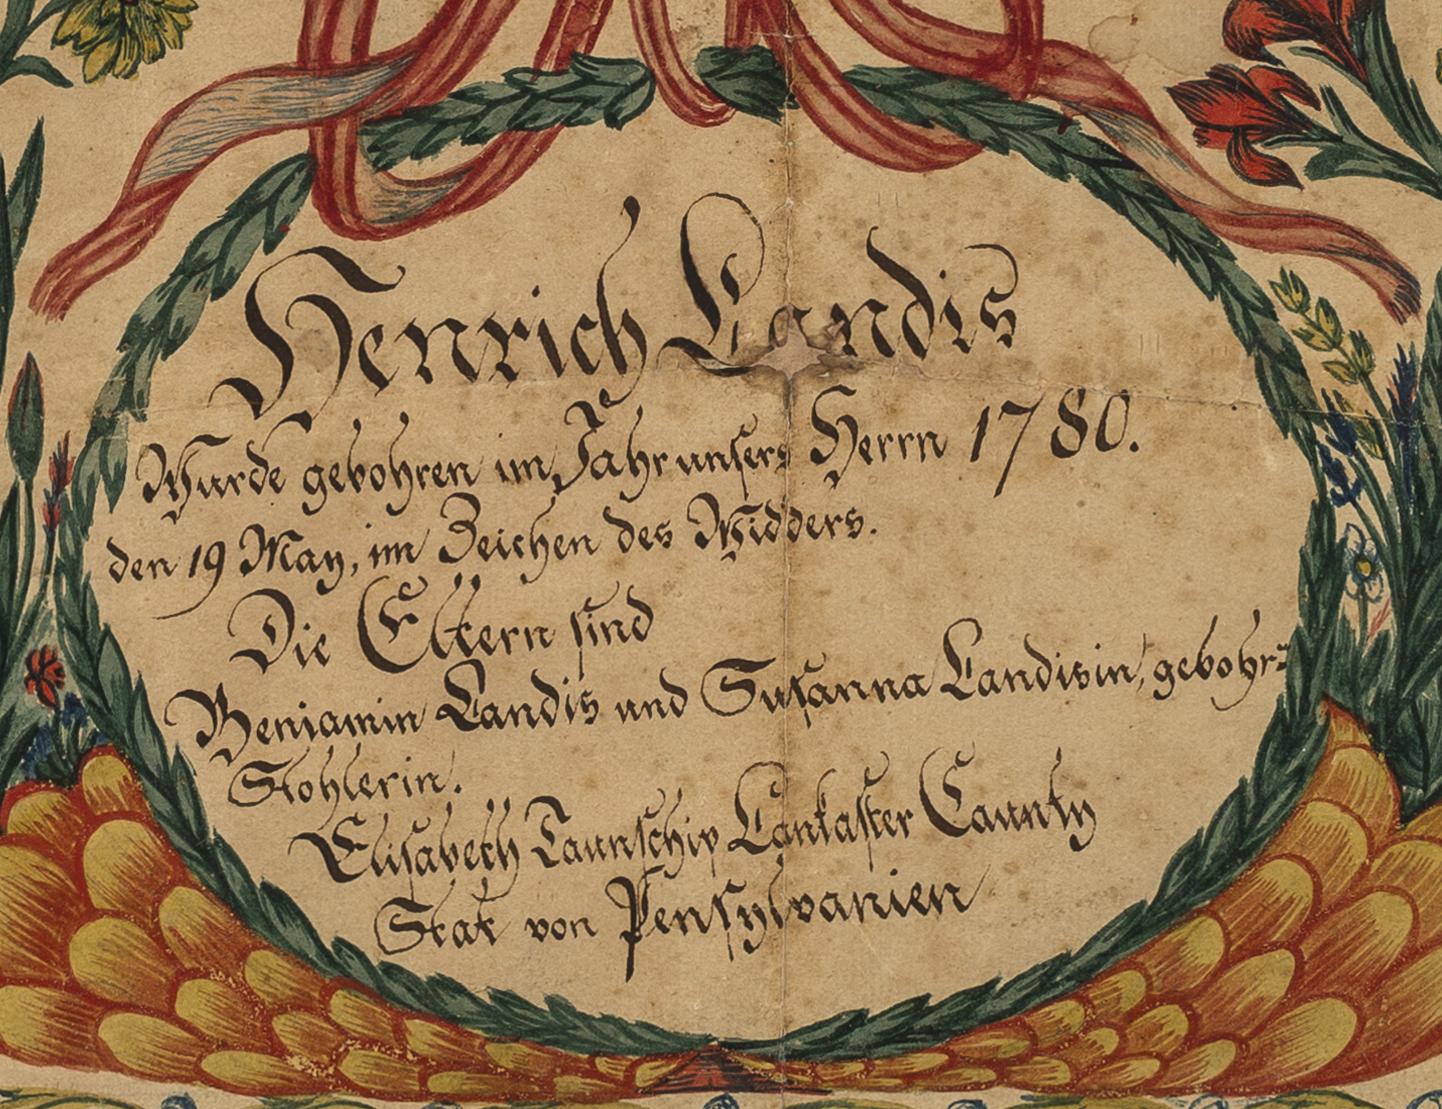 Henrich Landis
Wurde gebohren im Jahr unsers Herrn 1780.
den 19 May, im Zeichen des Widders.
Die Eltern sind
Benjamin Landis und Susanna Landisin, gebohr=
Stohlerin.
Elisabeth Taunschip Lankaster Caunty
Stat von Pensylvanien